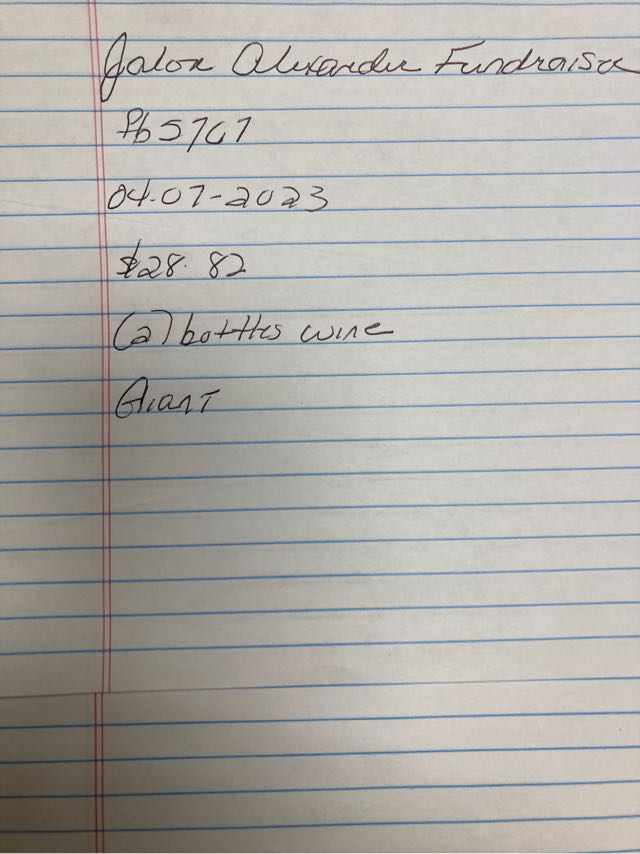 Jalon Alexander Fundraiser
Pb 5767
04-07-2023
$28.82
(2) bottles wine
Giant